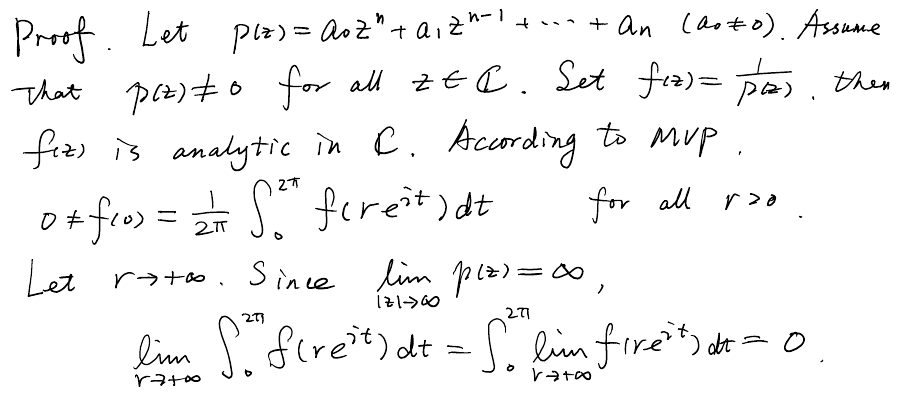 Proof. Let p(z) = a₀zⁿ + a₁zⁿ⁻¹ + ··· + aₙ (a₀ ≠ 0). Assume
That p(z) ≠ 0 for all z ∈ ℂ. Set f(z) = 1/p(z), then
f(z) is analytic in ℂ. According to MVP,
0 ≠ f(0) = 1/2π ∫₀^{2π} f(re^{it}) dt for all r>0.
Let r → +∞. Since lim_{|z|→∞} p(z) = ∞,
lim_{r→+∞} ∫₀^{2π} f(re^{it}) dt = ∫₀^{2π} lim_{r→+∞} f(re^{it}) dt = 0.